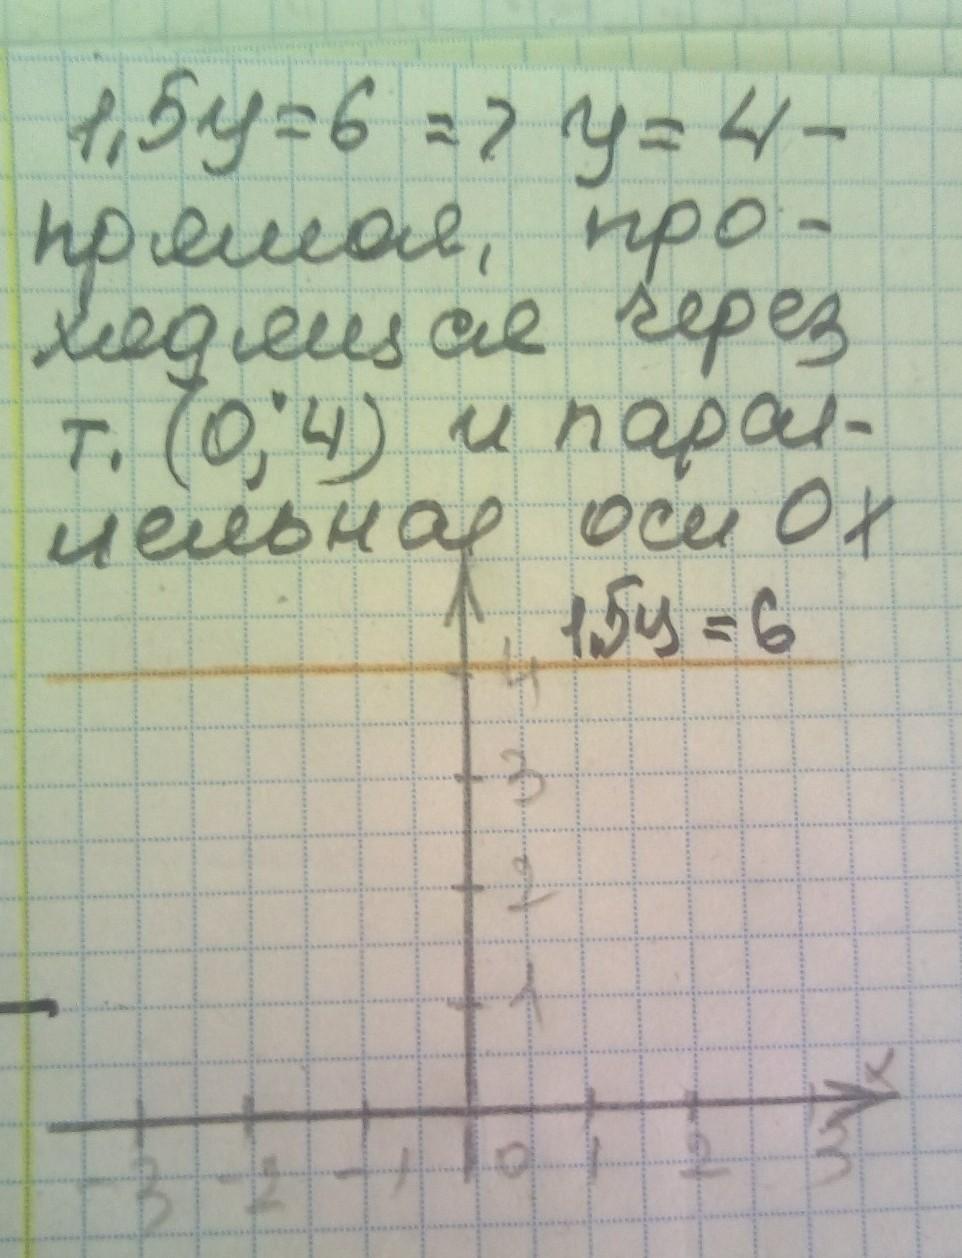 1,5y=6 => y=4 -
прямая, про-
ходящая через
т. (0; 4) и парал-
лельная оси Ox
1,5y=6
4
3
2
1
x
-3 -2 -1 0 1 2 3